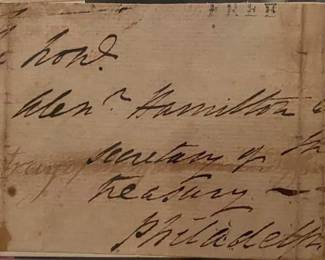 FREE
honl.
Alexr. Hamilton
secretary of
treasury —
Philadelp